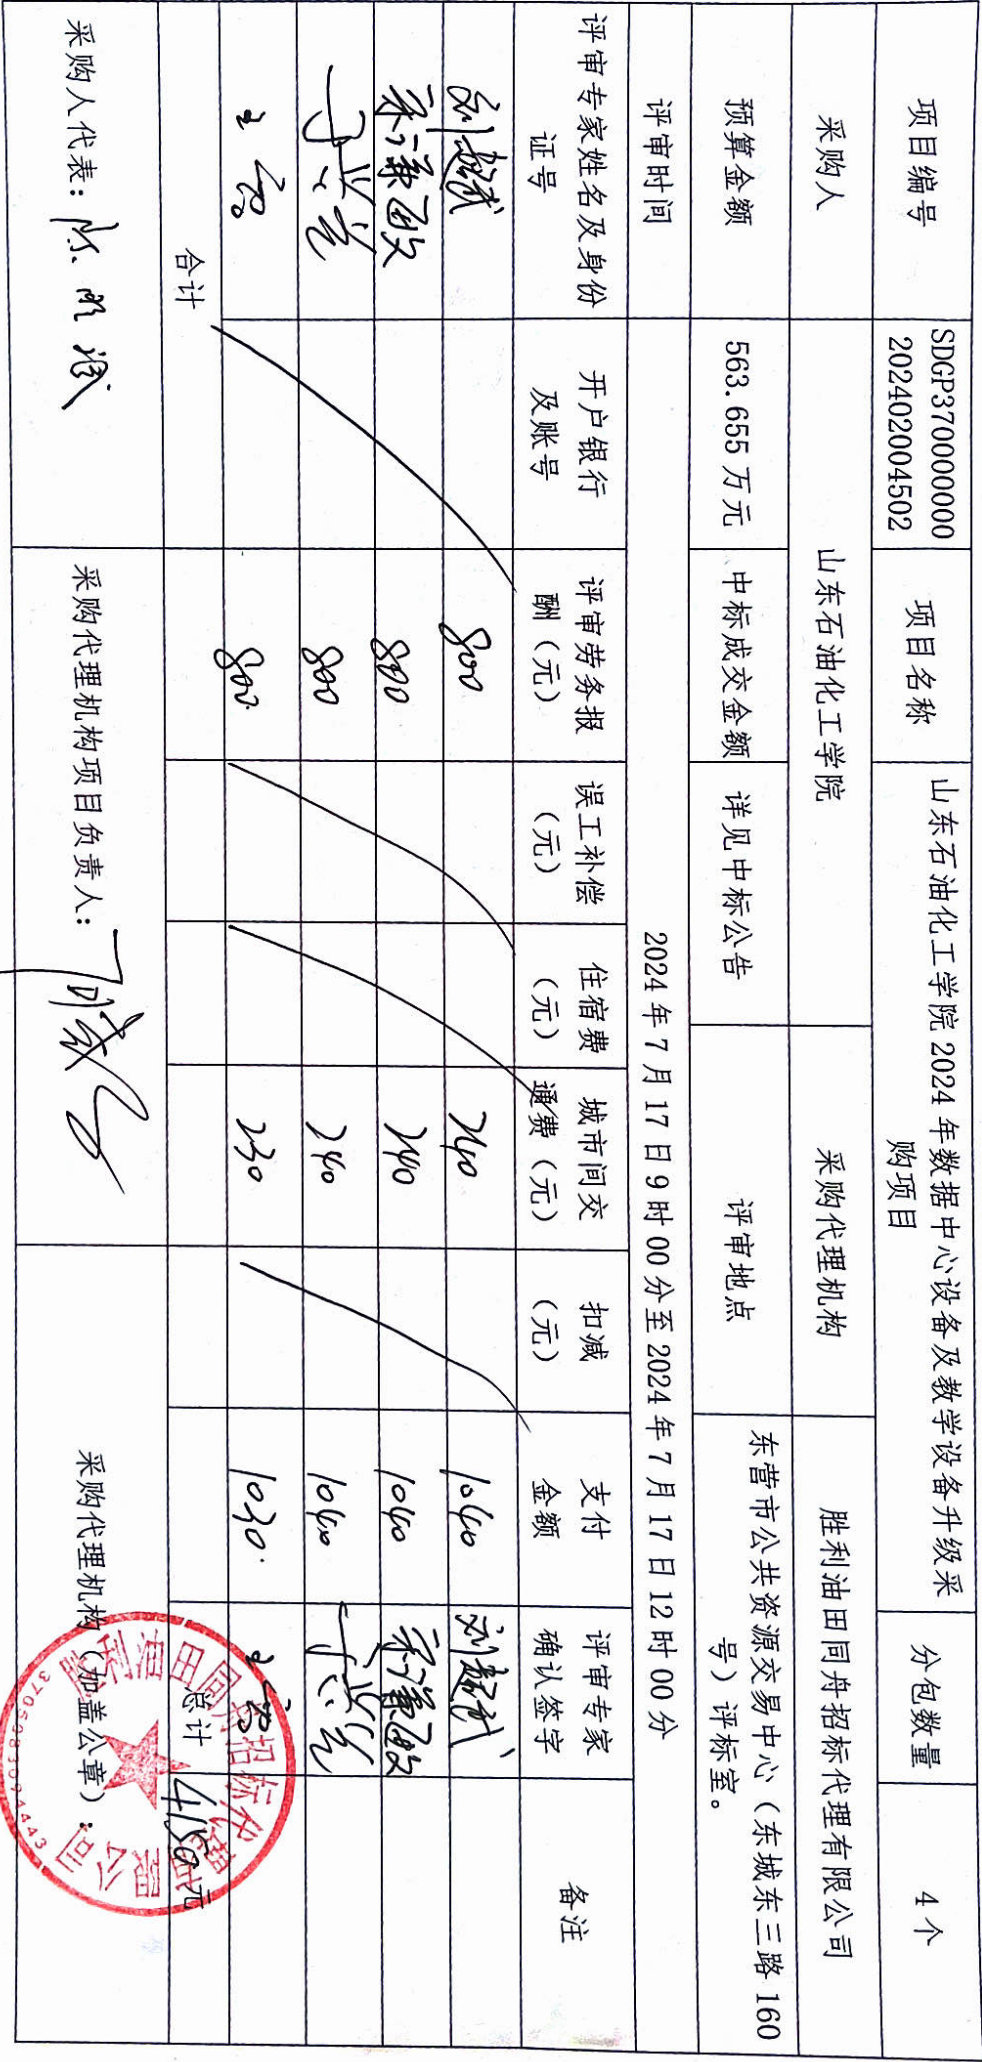 项目编号
SDGP370000000
202402004502
项目名称
山东石油化工学院 2024 年数据中心设备及教学设备升级采
购项目
分包数量
4 个
采购人
山东石油化工学院
采购代理机构
胜利油田同舟招标代理有限公司
预算金额
563.655 万元
中标成交金额
详见中标公告
评审地点
东营市公共资源交易中心（东城东三路 160
号）评标室。
评审时间
2024 年 7 月 17 日 9 时 00 分至 2024 年 7 月 17 日 12 时 00 分
评审专家姓名及身份
证号
开户银行
及账号
评审劳务报
酬（元）
误工补偿
（元）
住宿费
（元）
城市间交
通费（元）
扣减
（元）
支付
金额
评审专家
确认签字
备注
800
240
1040
800
240
1040
800
240
1040
800
230
1030
合计
总计
4150元
采购人代表：
采购代理机构项目负责人：
采购代理机构（加盖公章）：
胜利油田同舟招标代理有限公司